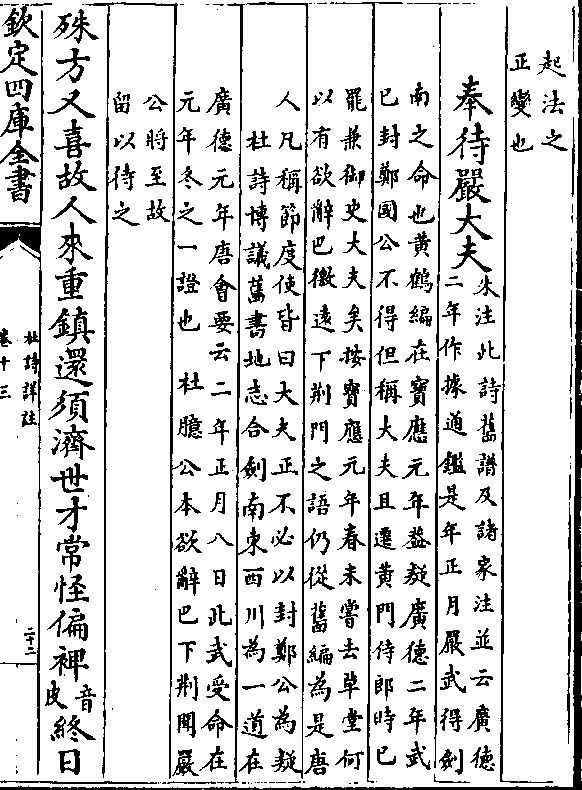 起法之
正變也
奉待嚴大夫
朱注此詩舊譜及諸家注並云廣德
二年作據通鑑是年正月嚴武得劍
南之命也黄鶴編在寶應元年葢疑廣德二年武
已封鄭國公不得但稱大夫且遷黄門侍郎時已
罷兼御史大夫矣按寶應元年春未嘗去草堂何
以有欲辭巴徼逺下荆門之語仍從舊編為是唐
人凡稱節度使皆曰大夫正不必以封鄭公為疑
杜詩博議舊書地志合劍南東西川為一道在
廣德元年唐會要云二年正月八日此武受命在
元年冬之一證也 杜臆公本欲辭巴下荆聞嚴
公將至故
留以待之
殊方又喜故人來重鎮還須濟世才常怪偏裨音皮終日
欽定四庫全書
杜詩詳註
卷十三
二十二